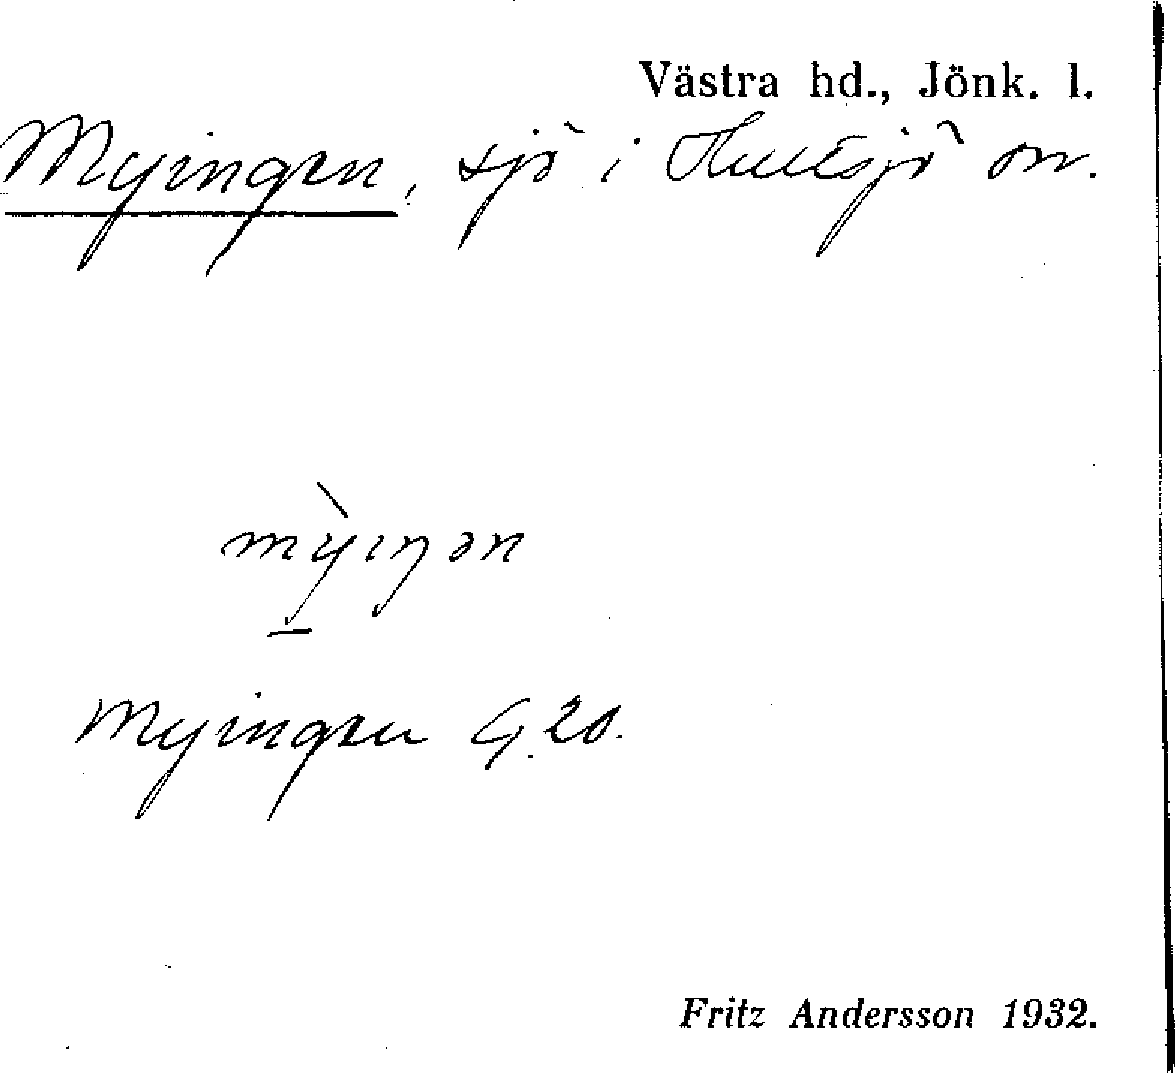 Västra hd., Jönk. l.
Myingen, sjö i Hultsjö sn.
mỳıŋən
Myingen G. 20.
Fritz Andersson 1932.